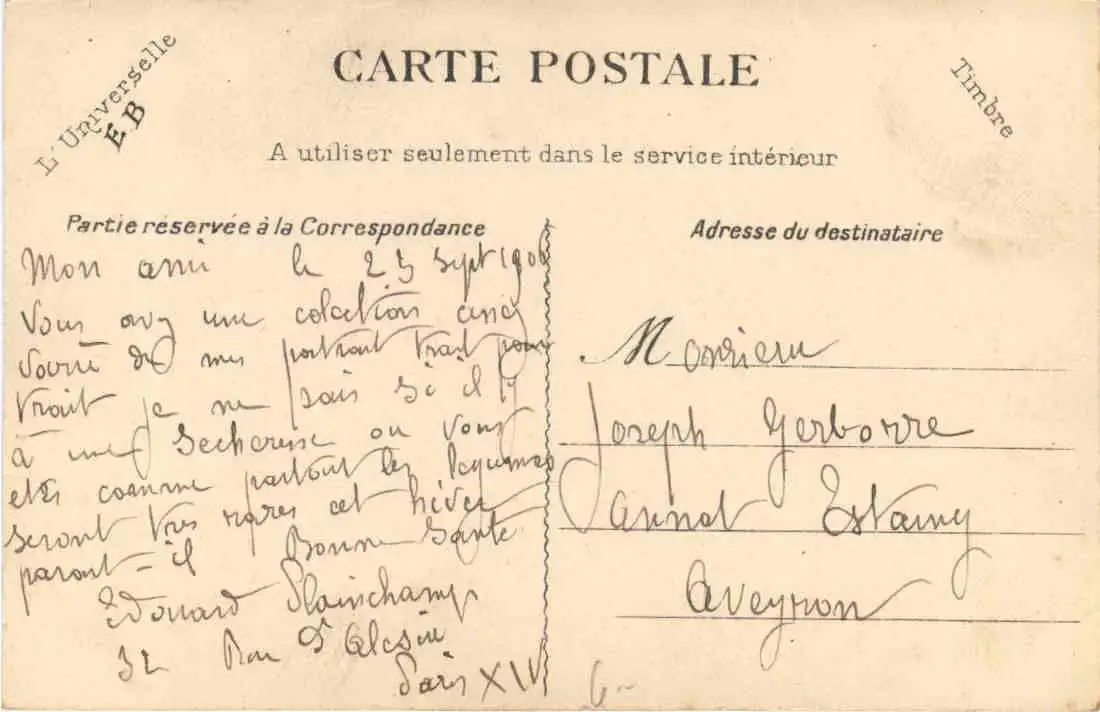 L'Universelle
EB
CARTE POSTALE
Timbre
A utiliser seulement dans le service intérieur
Partie réservée à la Correspondance
Mon ami le 23 Sept 1906
Vous avez une colection
de mes portrait trait pour
trait je ne sais si il y
à une secheresse ou vous
etes comme partout les legumes
seront tres rares cet hiver
parait-il Bonne Santé
Edouard Plainchamp
32 Rue d'Alesia
Paris XIV
Adresse du destinataire
Monsieur
Joseph Gerborre
Annat Estaing
Aveyron
6-